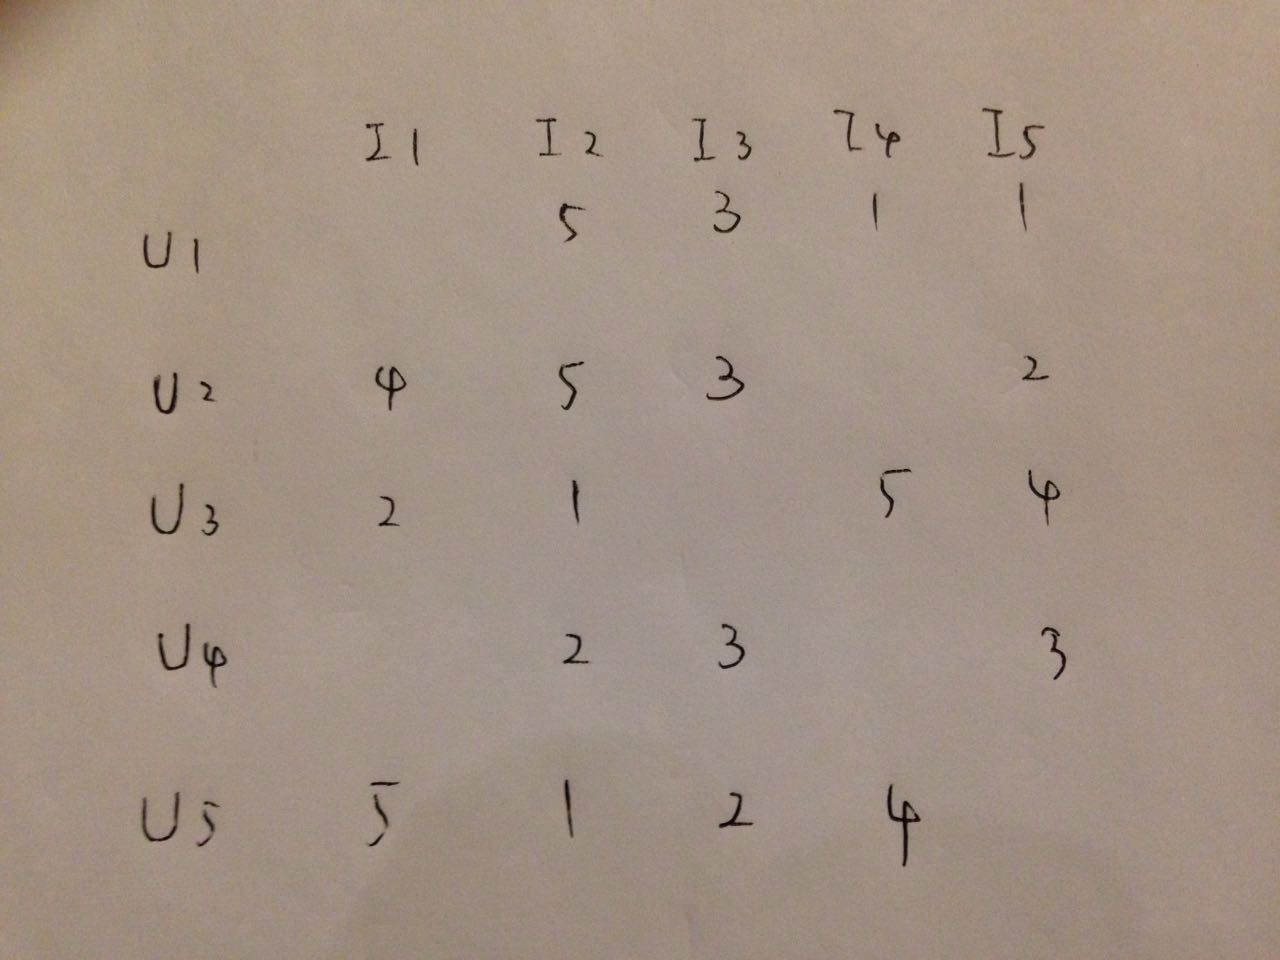 I1 I2 I3 I4 I5
U1 5 3 1 1
U2 4 5 3 2
U3 2 1 5 4
U4 2 3 3
U5 5 1 2 4